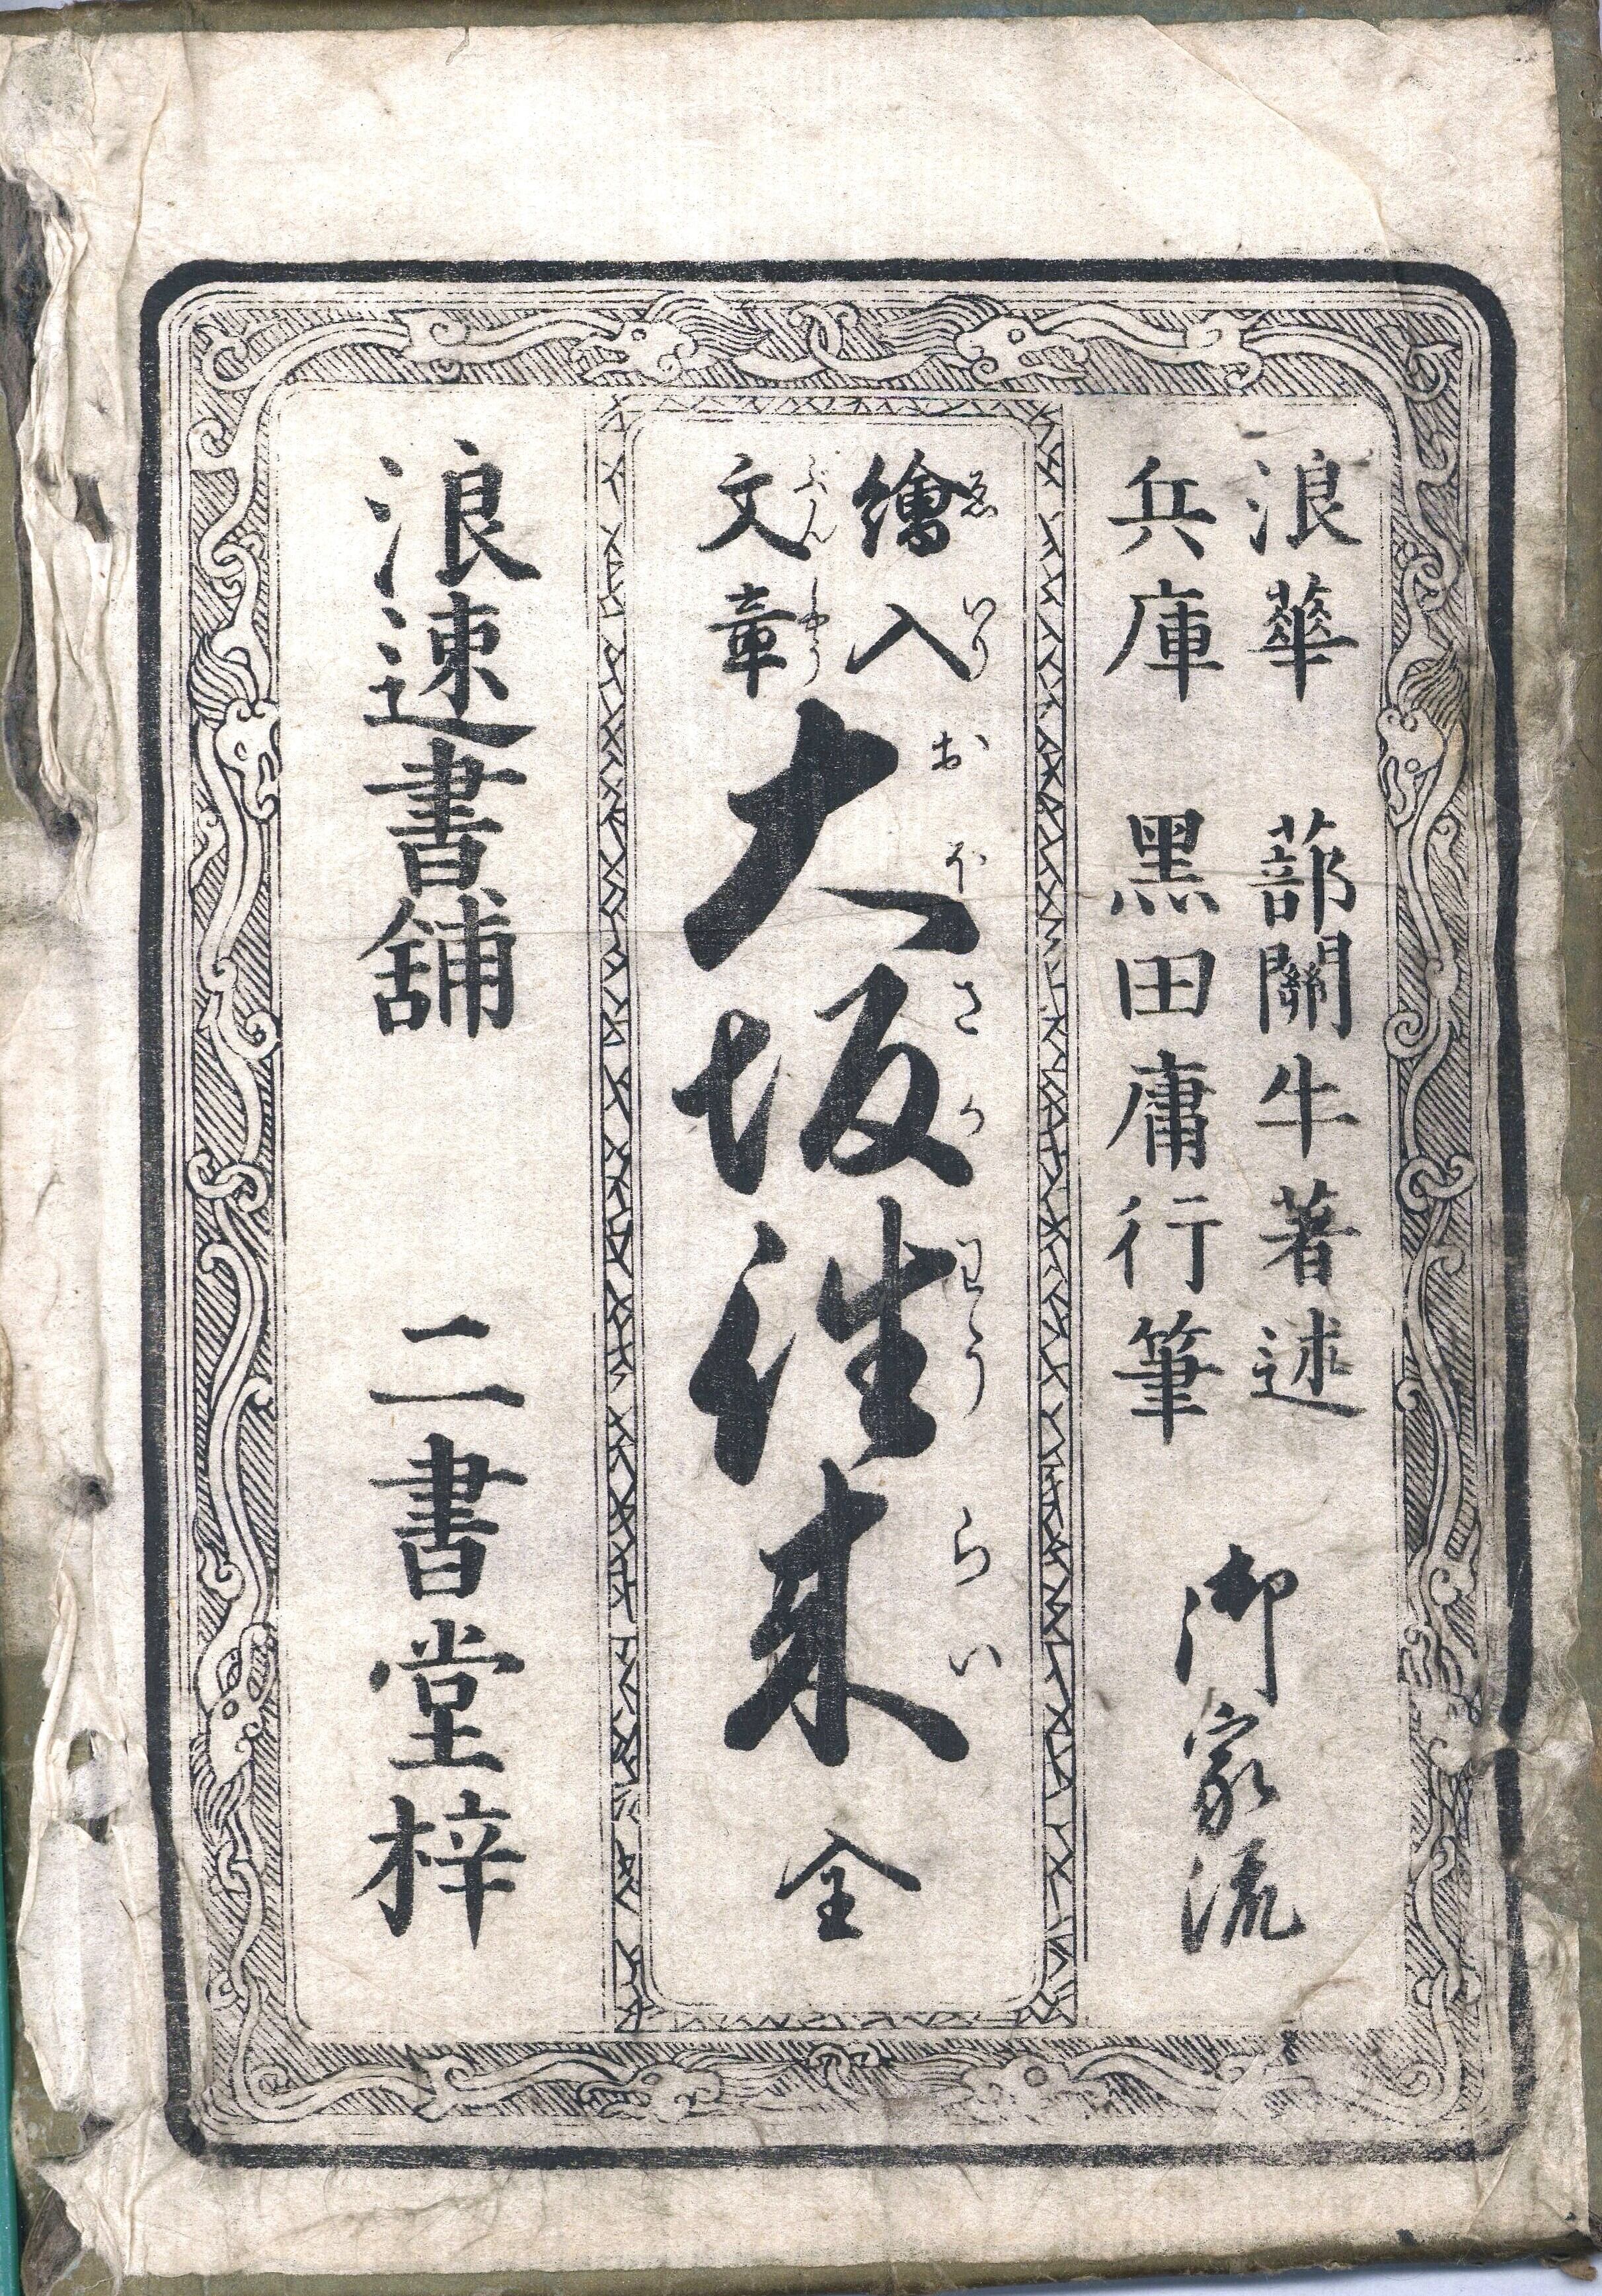 浪華 蔀關牛著述
兵庫 黑田庸行筆
御家流
繪入
ゑいり
文章
ぶんしやう
大坂往来 全
おほさかわうらい
浪速書舗 二書堂梓